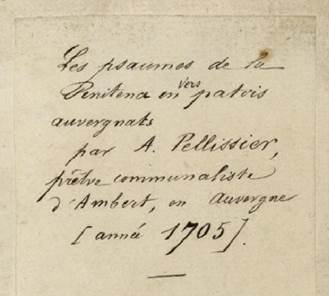 Les psaumes de la
Penitena en vers patois
auvergnats
par A. Pellissier,
prêtre communaliste
d'Ambert, en Auvergne
[année 1705].